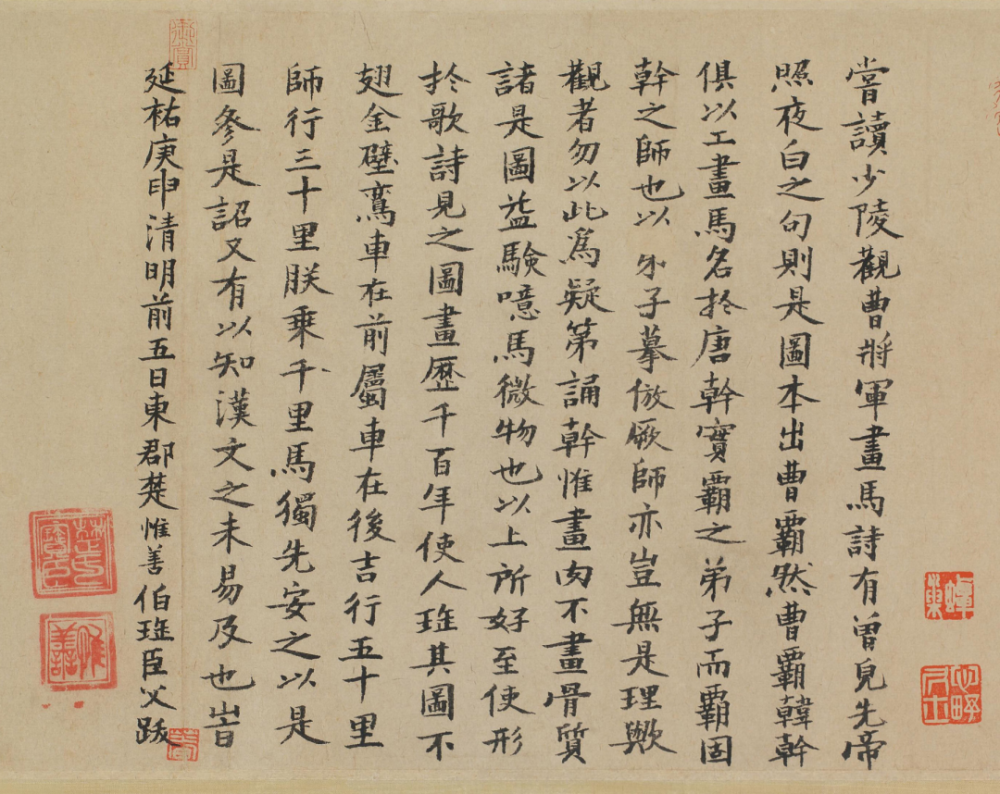 嘗讀少陵觀曹將軍畫馬詩有曾見先帝
照夜白之句則是圖本出曹霸然曹霸韓幹
俱以工畫馬名於唐幹實霸之弟子而霸固
幹之師也以弟子摹倣厥師亦豈無是理歟
觀者勿以此為疑第誦幹惟畫肉不畫骨質
諸是圖益驗噫馬微物也以上所好至使形
於歌詩見之圖畫歷千百年使人珍其圖不
翅金璧鸞車在前屬車在後吉行五十里
師行三十里朕乘千里馬獨先安之以是
圖參是詔又有以知漢文之未易及也岩
延祐庚申清明前五日東郡楚惟善伯珍臣父跋
惟善